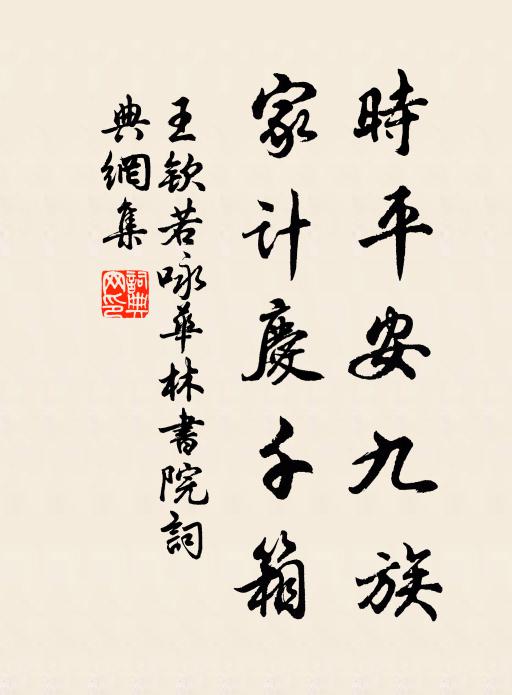 時平安九族
家計慶千箱
王欽若咏華林書院詞
典網集
詞典網印